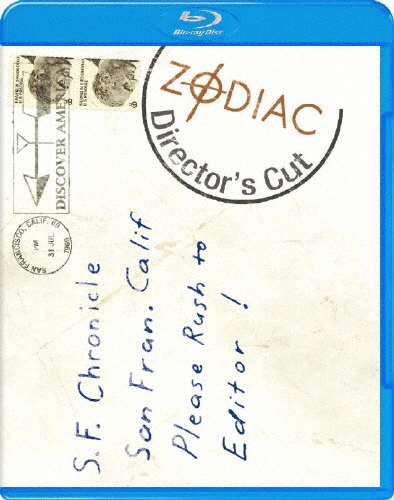 Blu-ray Disc
ZODIAC
Director's Cut
DISCOVER AMERICA
SAN FRANCISCO, CALIF.
PM
31 JUL
1969
S.F. Chronicle
San Fran. Calif
Please Rush to
Editor!